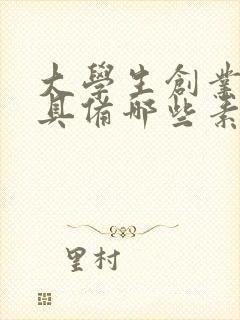 大學生創業
具備哪些素
里村